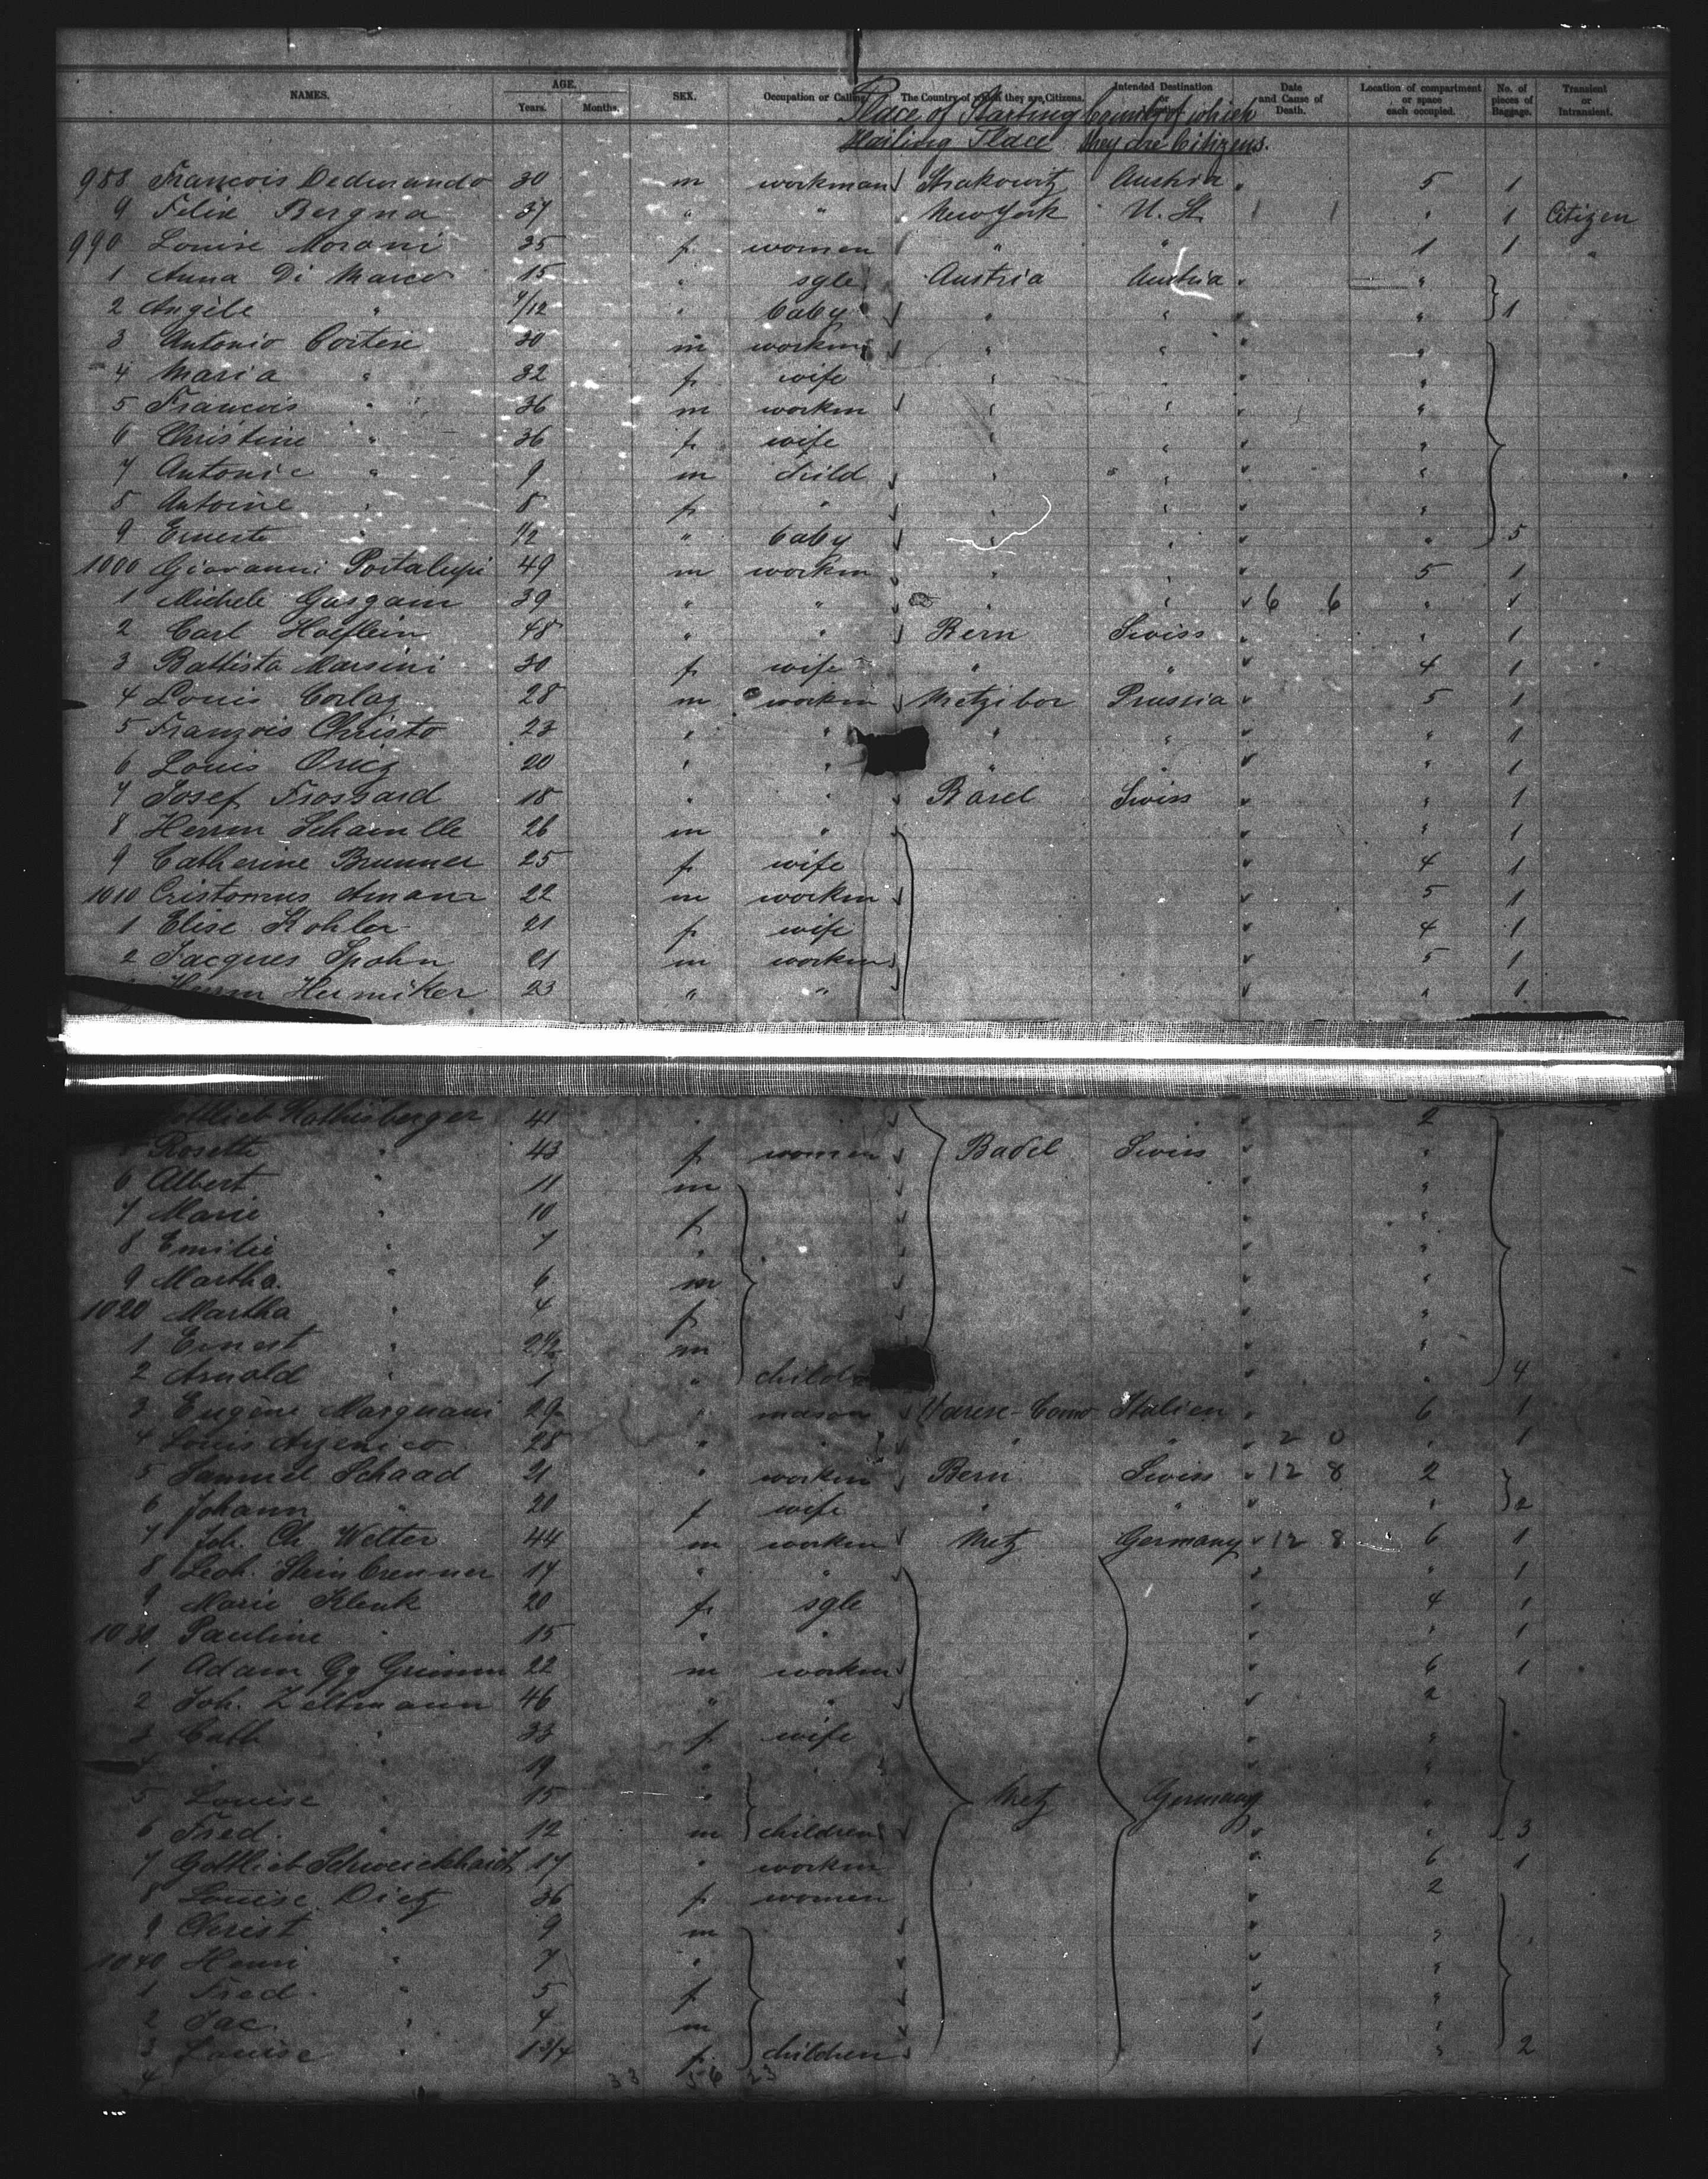 NAMES. AGE. Years. Months. SEX. Occupation or Calling. The Country of which they are Citizens. Intended Destination or Date and Cause of Death. Location of compartment or space each occupied. No. of pieces of Baggage. Transient or Intransient.
Place of Starting Country of which
Hailing Place they are Citizens.
988 François Dedmando 30 m workman Austria 5 1
9 Felix Bergna 37 " " New York U. St. 1 1 " 1 Citizen
990 Louise Morani 35 f women " " 1 1 "
1 Anna Di Marco 15 " sgle Austria Austria "
2 Angèle " 7/12 " baby " " " 1
3 Antonio Cortese 30 m workm " " "
4 Maria " 32 f wife " " "
5 François " 36 m workm " " "
6 Christine " 36 f wife " " "
7 Antonie " 9 m child " " "
8 Antoine " 8 f " " " "
9 Erneste " 1/2 " baby " " " 5
1000 Giovanni Portalupi 49 m workm " " 5 1
1 Michele 39 " " " " 6 6 " 1
2 Carl Hoeflein 48 " " Bern Swiss " 1
3 Battista Marsini 30 f wife " " 4 1
4 Louis Corlaz 28 m workm Metzibor Prussia 5 1
5 François Christo 23 " " " " " 1
6 Louis 20 " " " " " 1
7 Josef Frossard 18 " " Basel Swiss " 1
8 Herm 26 m " " 1
9 Catherine Brunner 25 f wife 4 1
1010 Amann 22 m workm 5 1
1 Elise Kohler 21 f wife 4 1
2 Jacques Spohn 21 m workm 5 1
Herm 23 " " " 1
41 " " 2
Rosette " 43 f women Basel Swiss "
6 Albert " 11 m "
7 Marie " 10 f "
8 Emilie " 7 " "
9 Martha " 6 m "
1020 Martha " 4 f "
1 Ernest " 2 1/2 m "
2 Arnold " 1 " child " 4
3 Eugène 29 " mason Varese-Como Italien 6 1
4 Louis 28 " " " " 2 0 " 1
5 Samuel Schaad 21 " workm Bern Swiss 12 8 2
6 Johann " 20 f wife " " " 2
7 Joh. Ch. Welter 44 m workm Metz Germany 12 8 6 1
8 Leoh. Steinbrenner 17 " " " 1
9 Marie Klenk 20 f sgle 4 1
1030 Pauline " 15 " " " 1
1 Adam Gg Grimm 22 m workm 6 1
2 Joh. Zeltmann 46 " " 2
3 Cath " 33 f wife "
4 " " 19 " " "
5 Louise " 15 " Metz Germany "
6 Fred. " 12 m children " 3
7 Gottlieb Schweickhardt 17 " workm 6 1
8 Louise Dietz 36 f women 2
9 Christ " 9 m "
1040 Henri " 7 " "
1 Fred. " 5 f "
2 Jac. " 4 m "
3 Louise " 1 3/4 f children " 2
4 33 56 23